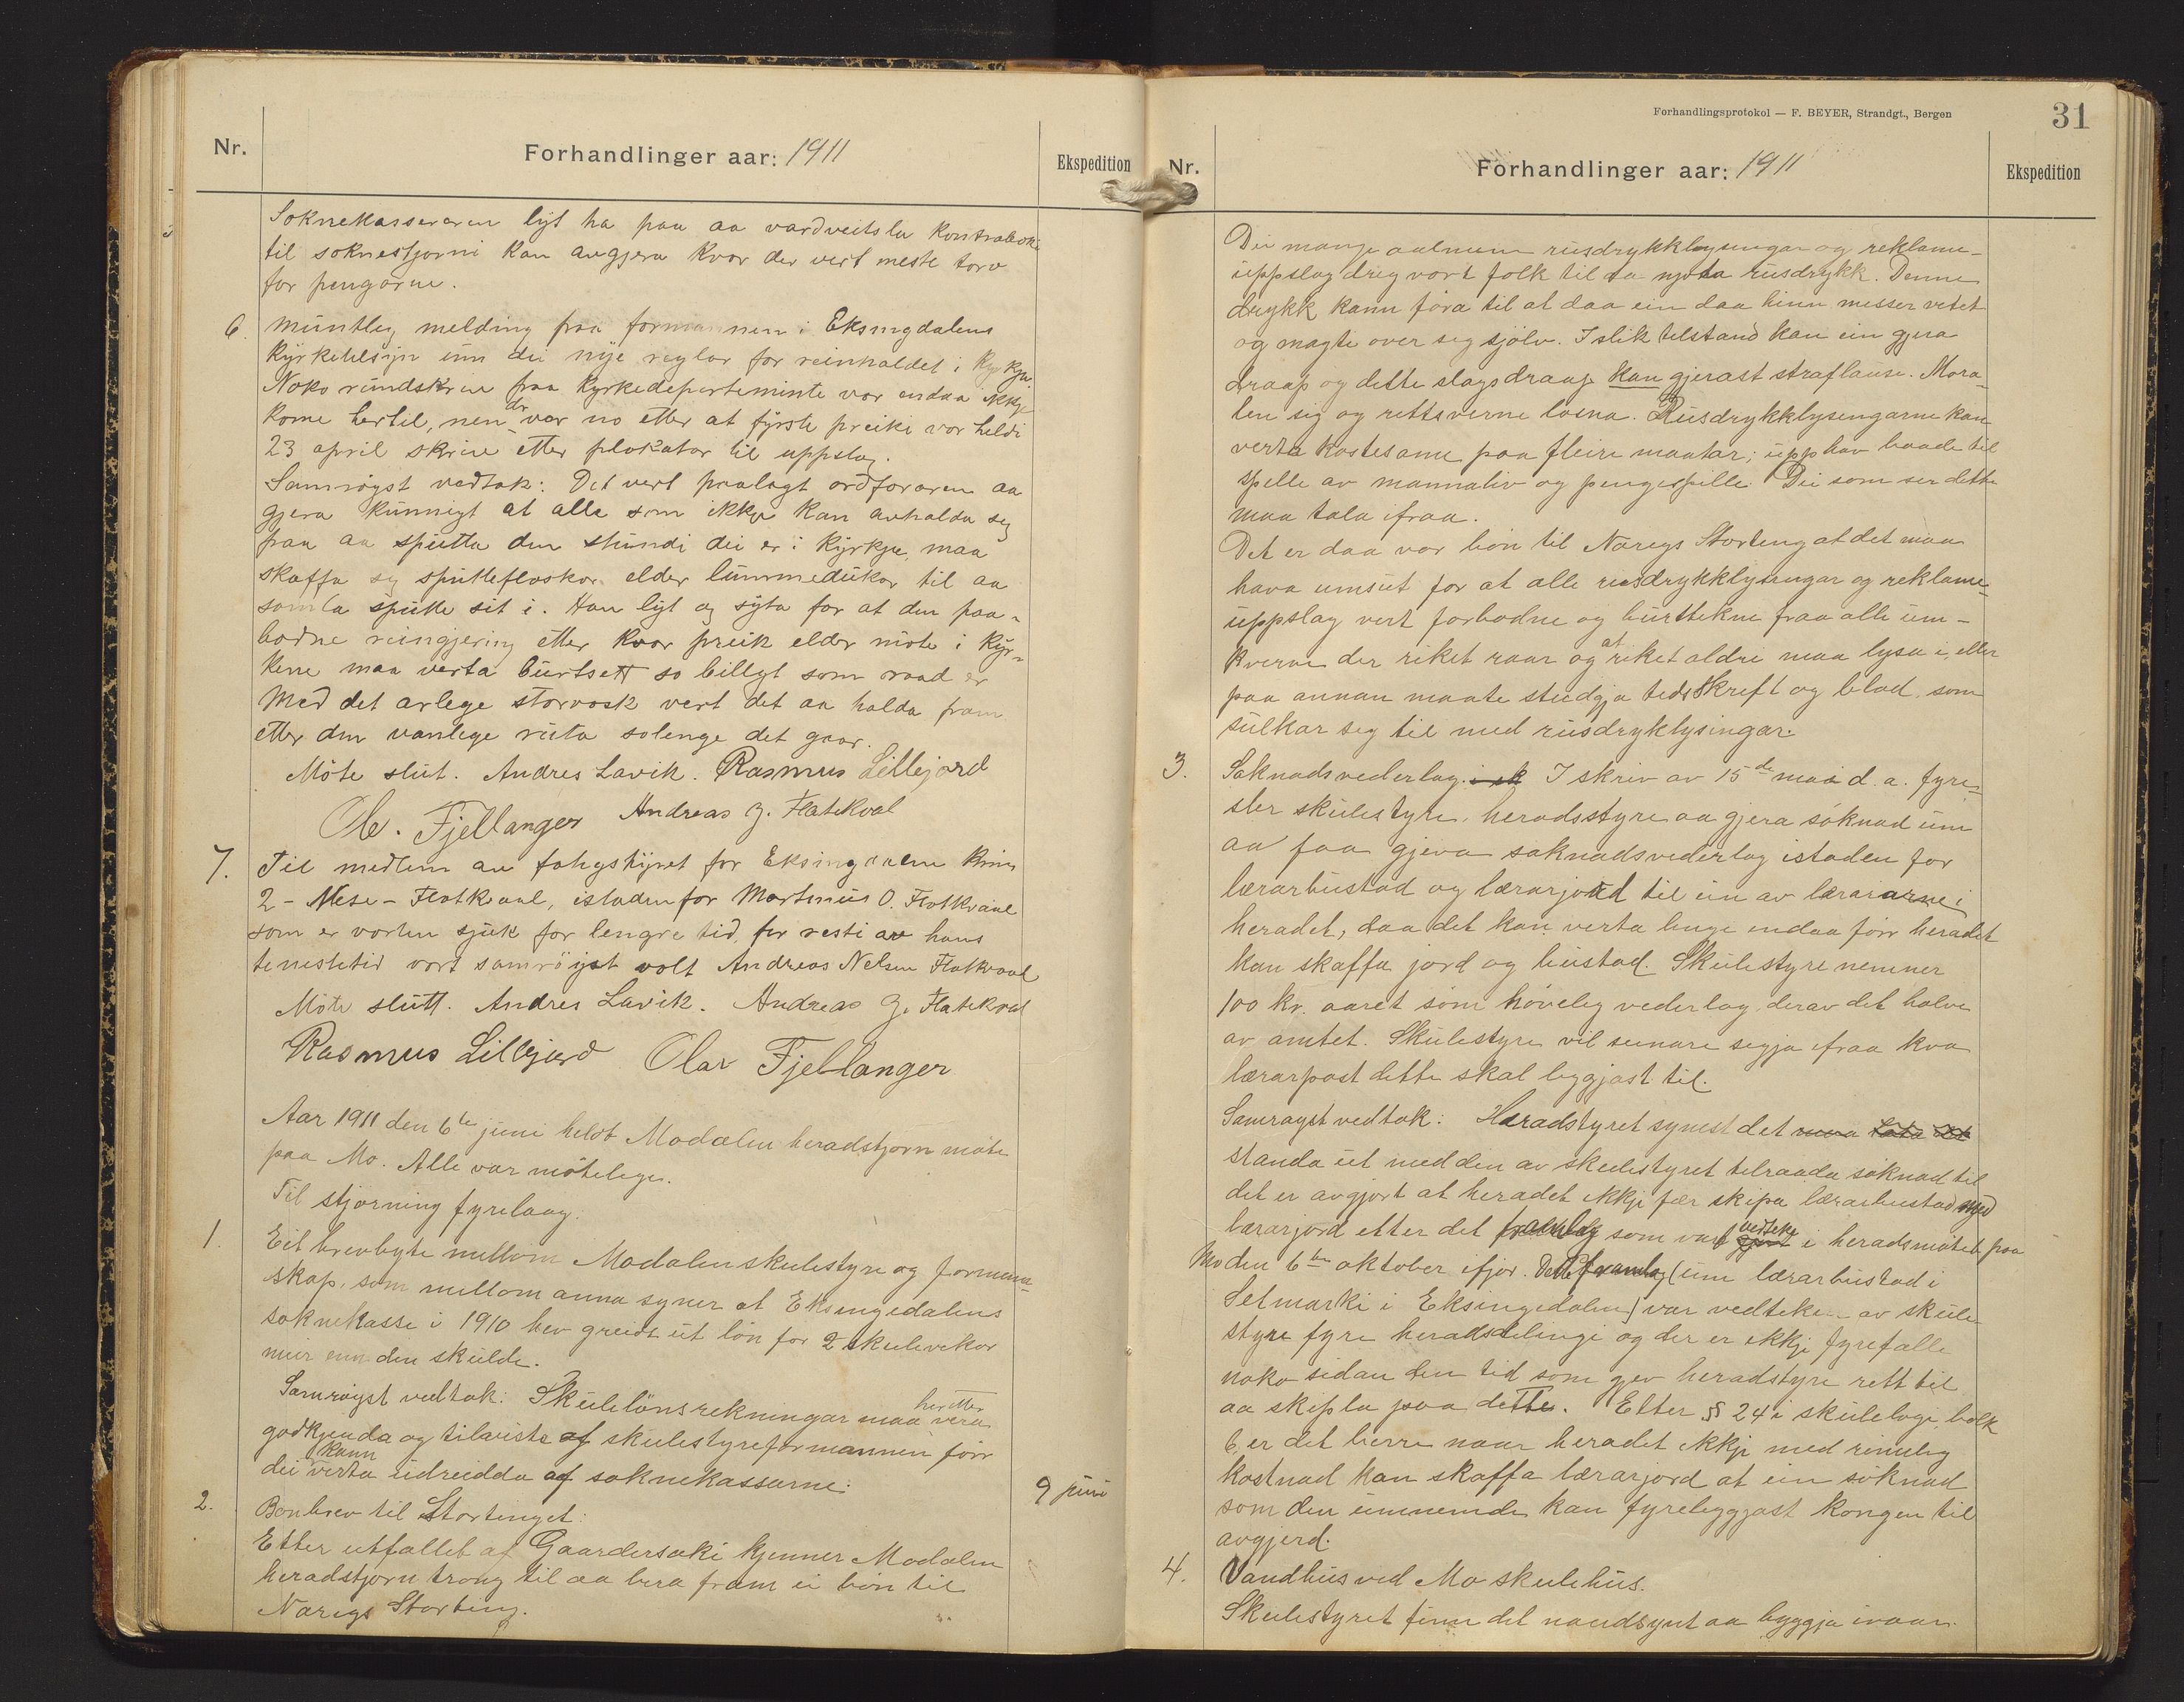 Nr.
Forhandlinger aar: 1911
Ekspedition
Soknekasseraren lyt ha paa aa vardveitsla Kontrabok
til soknestjorni kan avgjera kvor der vert meste torv
for pengarne.
6. Muntleg melding fraa formannen i Eksingdalens
Kyrketilsyn um dei nye reglar for reinhaldet i Kyrkju.
Noko rundskrive fraa Kyrkedepartemente var endaa ikkje
kome hertil, men der var no etter at fyrste preiki var heldi
23 april skrive etter plakatar til uppslag.
Samrøyst vedtak: Det vert paalagt ordføraren aa
gjera kunnigt at alle som ikkje kan avhalda seg
fraa aa sputta den stundi dei er i Kyrkju, maa
skaffa sg sputteflaskor elder lummedukar til aa
samla sputte sit i. Han lyt og syta for at den paa-
bodne reingjering etter kvar preik elder møte i Kyr-
kene maa verta burtsett so billegt som raad er
Med det arlege storvask vert det aa halda fram
etter den vanlege ruta solenge det gaar.
Møte slut. Andres Lavik. Rasmus Lillejord
Ole. Fjellanger Andreas J. Flatekval
7. Til medlem av fatigstyret for Eksingdalen Krins
2 - Nese - Flatkvaal, istadenfor Martinus O. Flatkvaal
som er vorten sjuk for lengre tid, for resti av hans
tenestetid vart samrøyst valt Andreas Nelsen Flatkvaal
Møte slutt. Andres Lavik. Andreas J. Flatekval
Rasmus Lillejord Olav Fjellanger
Aar 1911 den 6te juni heldt Modalen heradstjorn møte
paa Mo. Alle var møtelege.
Til stjorning fyrelaag:
1. Eit brevbyte millom Modalen skulestyre og formann-
skap, som millom anna syner at Eksingedalens
soknekasse i 1910 hev greidt ut løn for 2 skulevekor
meir enn den skulde.
Samrøyst vedtak: Skulelønsrekningar maa heretter vera
godkjenda og tilviste af skulestyreformannen förr
dei kann verta udreidda af soknekassarne.
2. Bonbrev til Stortinget:
9 juni
Etter utfallet af Gaardersaki kjenner Modalen
heradstjorn trong til aa bera fram ei bön til
Noregs Storting.
Forhandlingsprotokol — F. BEYER, Strandgt., Bergen
31
Nr.
Forhandlinger aar: 1911
Ekspedition
Dei mange aalmenn rusdrykklysingar og reklame-
uppslag dreg vort folk til aa njota rusdrykk. Denne
drykk kann föra til at daa ein daa hinn messer vetet
og magti over seg sjölv. I slik tilstand kan ein gjera
draap og dette slags draap kan gjerast straflause. Mora-
len sig og rettsverne losna. Rusdrykklysingarne kan
verta kostesame paa fleire maatar; upphav baade til
spille av mannaliv og pengespille. Dei som ser dette
maa tala ifraa.
Det er daa vor bön til Noregs Storting at det maa
hava umsut for at alle rusdrykklysingar og reklame-
uppslag vert forbodne og burttekne fraa alle um-
kverve der riket raar og at riket aldri maa lysa i, eller
paa annan maate studgja tidsskrift og blad, som
sulkar seg til med rusdryklysingar.
3. Saknadsvederlag. I skriv av 15de mai d. a. fyre-
sler skulestyre, heradsstyre aa gjera søknad um
aa faa gjeva saknadsvederlag istaden for
lærarbustad og lærarjord til ein av lærararne i
heradet, daa det kan verta lenge endaa förr heradet
kan skaffa jord og bustad. Skulestyre nemner
100 kr. aaret som høveleg vederlag, derav det halve
av amtet. Skulestyre vil seinare segja ifraa kva
lærarpost dette skal leggjast til.
Samrøyst vedtak: Heradstyret synest det maa lata det
standa ut med den av skulestyret tilraada søknad til
det er avgjort at heradet ikkje fær skipa lærarbustad med
lærarjord etter det framlag som vart gjort vedteke i heradsmøtet paa
Mo den 6te oktober ifjor. Dette framlag (um lærarbustad i
Selmarki i Eksingedalen) var vedteken av skule
styre fyre heradsdelingi og der er ikkje fyrefalle
noko sidan den tid som gjev heradstyre rett til
aa skipla paa dette. Etter § 24 i skulelogi bolk
6, er det berre naar heradet ikkje med rimeleg
kostnad kan skaffa lærarjord at ein søknad
som den umnemde kan fyreleggjast kongen til
avgjerd.
4. Vandhus ved Mo skulehus.
Skulestyret finn det naudsynt aa byggja ivaar